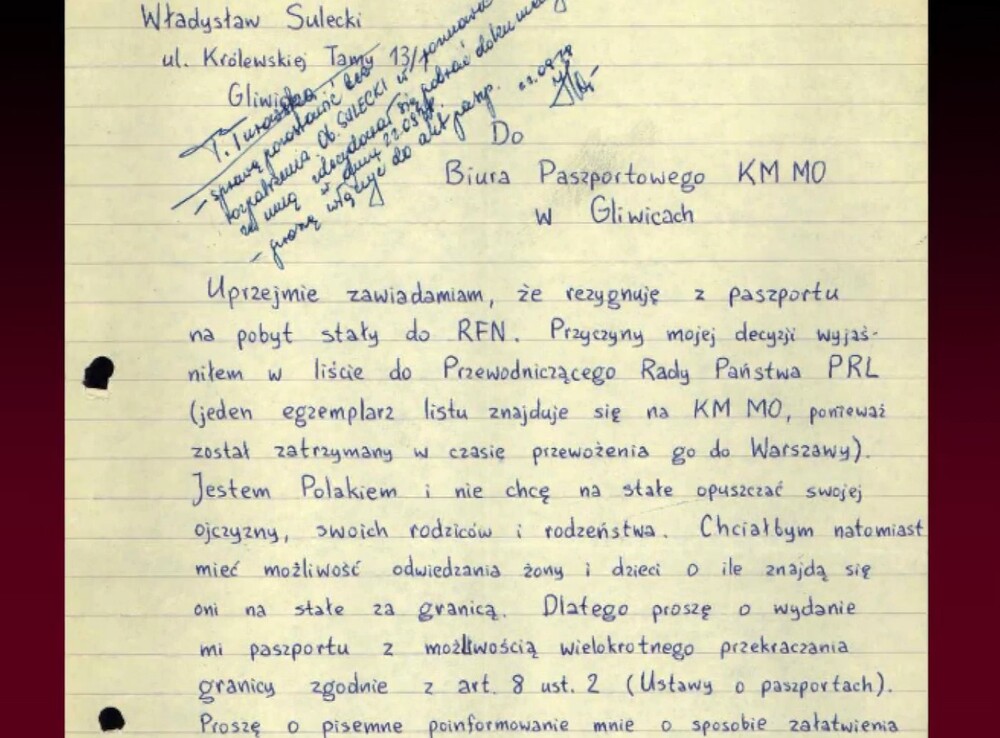 Władysław Sulecki
ul. Królewskiej Tamy 13/
Gliwice
T.
- sprawę pozostawić bez
rozpatrzenia Ob. SULECKI w
się pobrać
w dniu 22.09
- włączyć do akt paszp. 22.09.78
Do
Biura Paszportowego KM MO
w Gliwicach
Uprzejmie zawiadamiam, że rezygnuję z paszportu
na pobyt stały do RFN. Przyczyny mojej decyzji wyjaś-
niłem w liście do Przewodniczącego Rady Państwa PRL
(jeden egzemplarz listu znajduje się na KM MO, ponieważ
został zatrzymany w czasie przewożenia go do Warszawy).
Jestem Polakiem i nie chcę na stałe opuszczać swojej
ojczyzny, swoich rodziców i rodzeństwa. Chciałbym natomiast
mieć możliwość odwiedzania żony i dzieci o ile znajdą się
oni na stałe za granicą. Dlatego proszę o wydanie
mi paszportu z możliwością wielokrotnego przekraczania
granicy zgodnie z art. 8 ust. 2 (Ustawy o paszportach).
Proszę o pisemne poinformowanie mnie o sposobie załatwienia